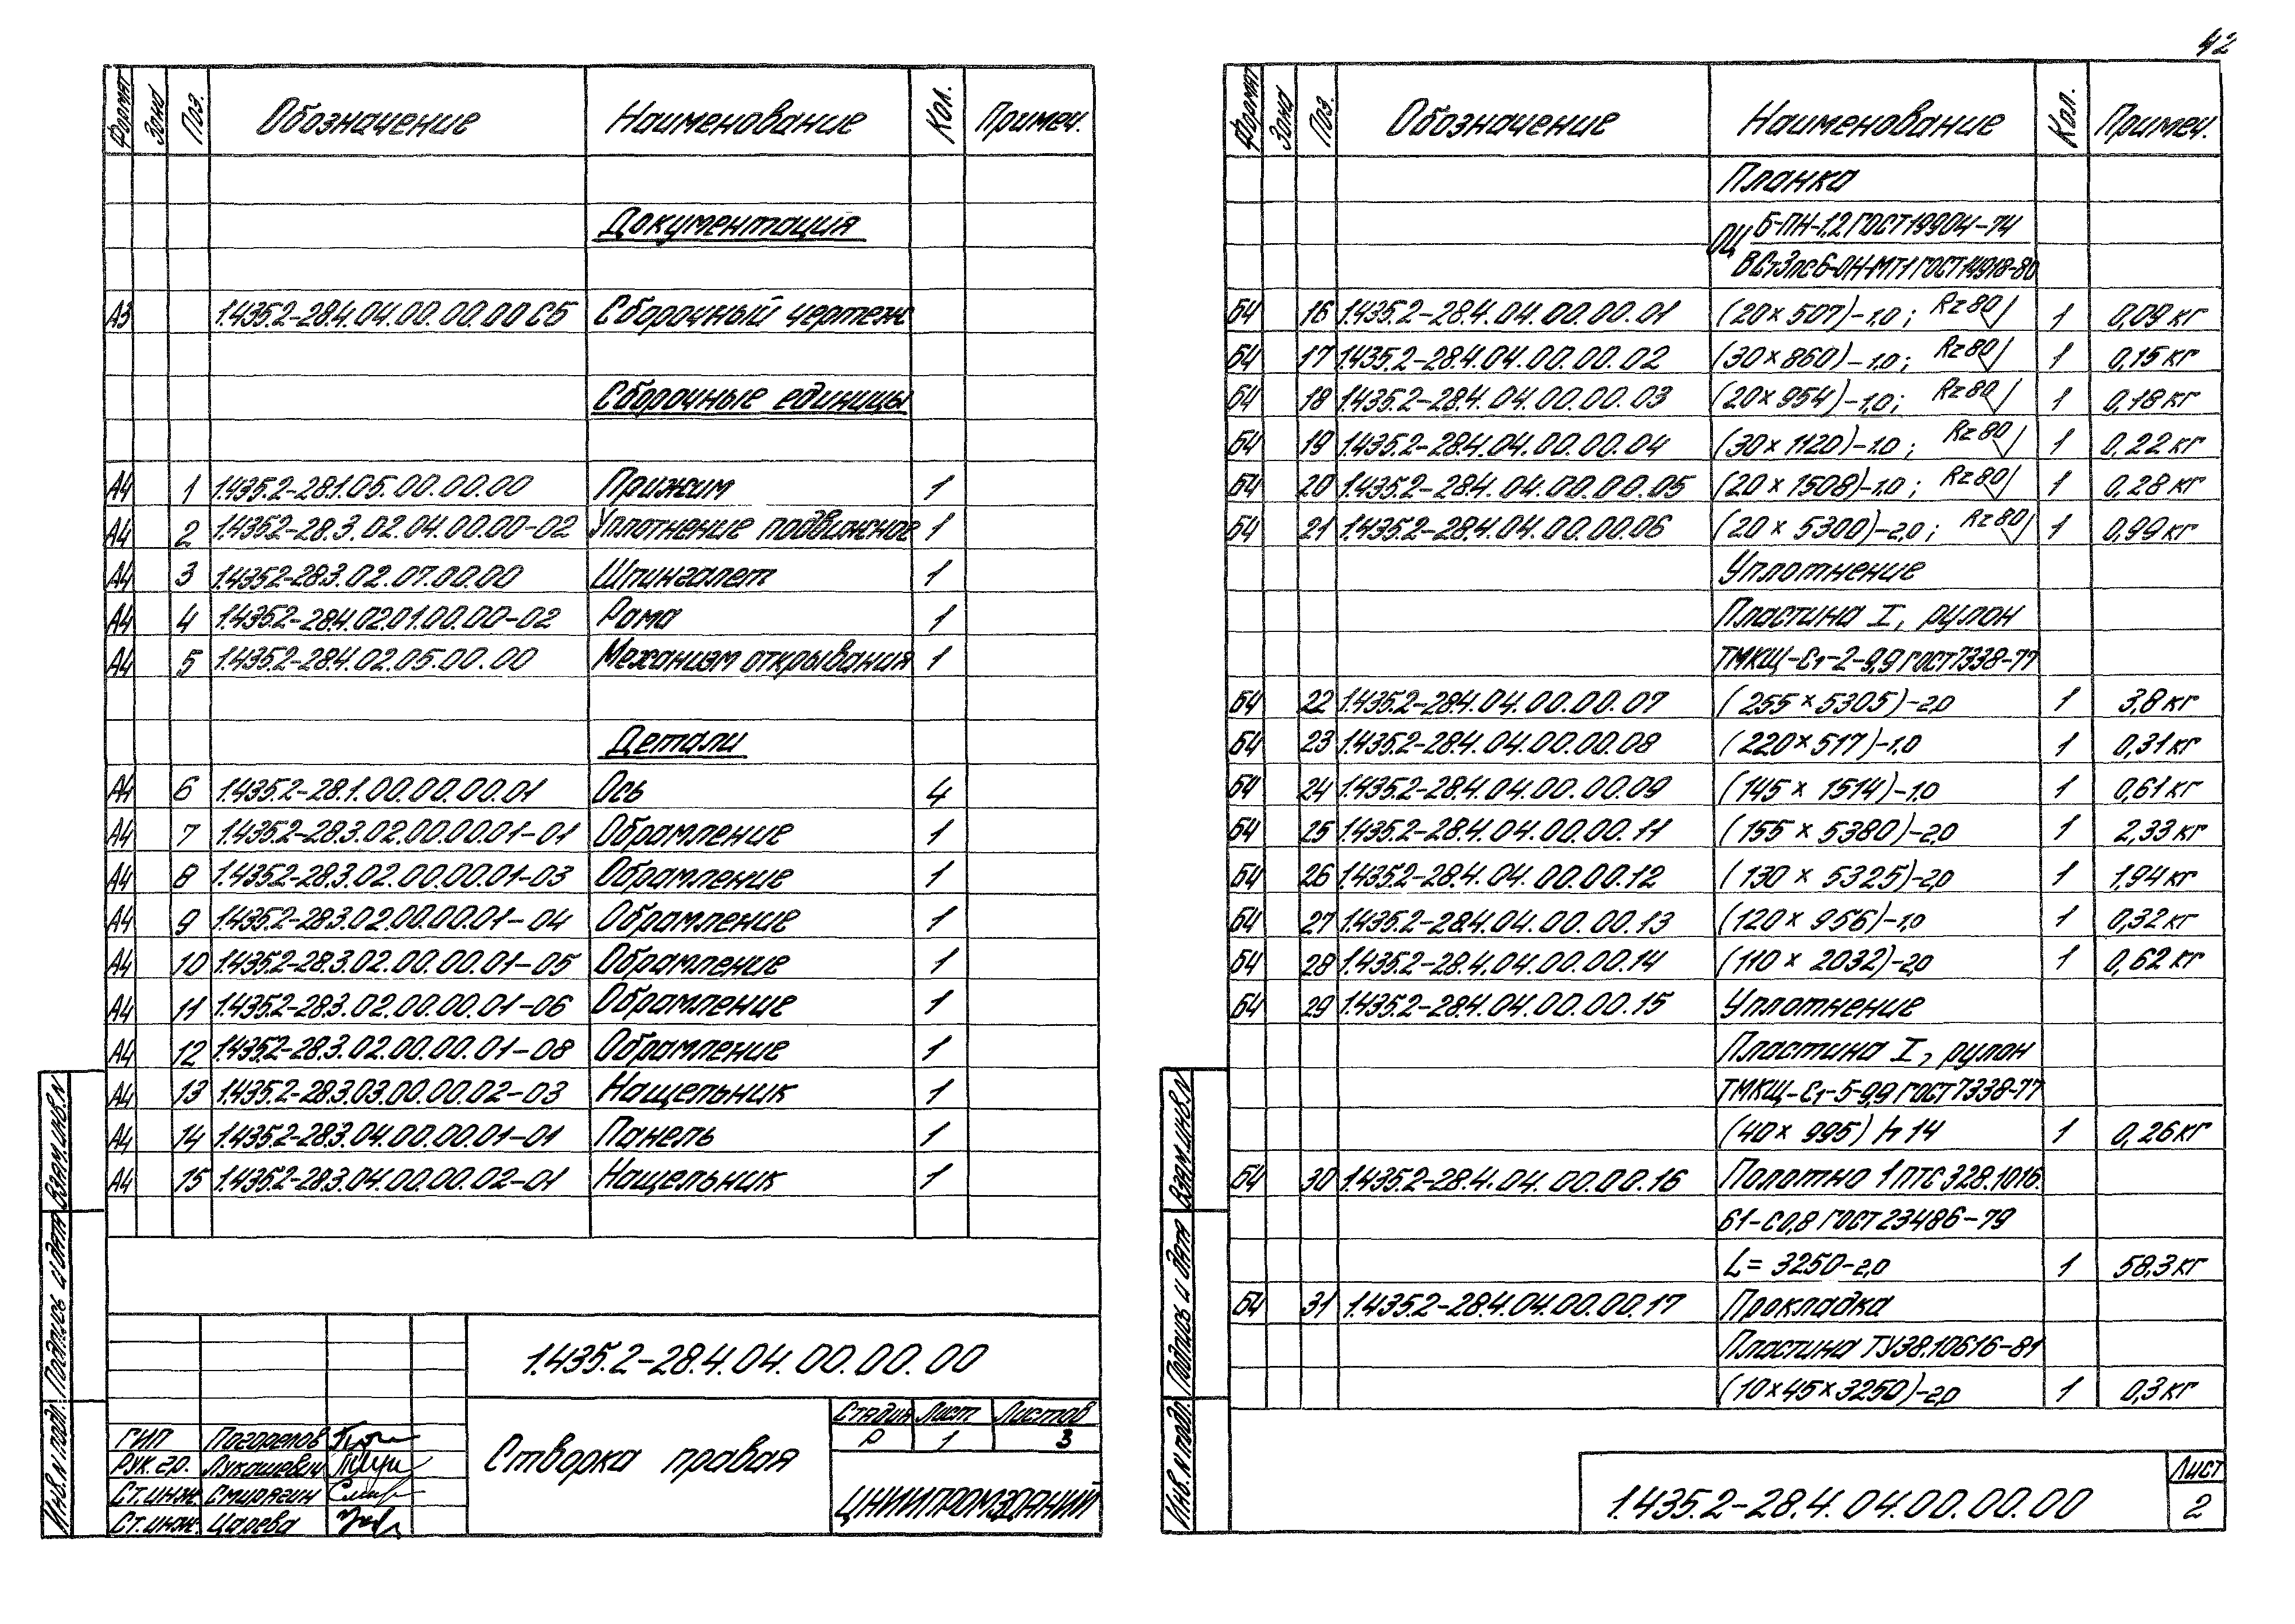 42
Формат Зона Поз. Обозначение Наименование Кол. Примеч.
Документация
А3 1.435.2-28.4.04.00.00.00СБ Сборочный чертеж
Сборочные единицы
А4 1 1.435.2-28.1.05.00.00.00 Прижим 1
А4 2 1.435.2-28.3.02.04.00.00-02 Уплотнение подвижное 1
А4 3 1.435.2-28.3.02.07.00.00 Шпингалет 1
А4 4 1.435.2-28.4.02.01.00.00-02 Рама 1
А4 5 1.435.2-28.4.02.05.00.00 Механизм открывания 1
Детали
А4 6 1.435.2-28.1.00.00.00.01 Ось 4
А4 7 1.435.2-28.3.02.00.00.01-01 Обрамление 1
А4 8 1.435.2-28.3.02.00.00.01-03 Обрамление 1
А4 9 1.435.2-28.3.02.00.00.01-04 Обрамление 1
А4 10 1.435.2-28.3.02.00.00.01-05 Обрамление 1
А4 11 1.435.2-28.3.02.00.00.01-06 Обрамление 1
А4 12 1.435.2-28.3.02.00.00.01-08 Обрамление 1
А4 13 1.435.2-28.3.03.00.00.02-03 Нащельник 1
А4 14 1.435.2-28.3.04.00.00.01-01 Панель 1
А4 15 1.435.2-28.3.04.00.00.02-01 Нащельник 1
Взам. инв. N
Подпись и дата
Инв. N подл.
1.435.2-28.4.04.00.00.00
ГИП Погорелов
Рук. гр. Лукашевич
Ст. инж. Смирягин
Ст. инж. Царева
Створка правая
Стадия Лист Листов
Р 1 3
ЦНИИПРОМЗДАНИЙ
Формат Зона Поз. Обозначение Наименование Кол. Примеч.
Планка
ОЦ Б-ПН-1,2 ГОСТ 19904-74
ВСт3пс6-ОН-МТ1 ГОСТ 14918-80
Б4 16 1.435.2-28.4.04.00.00.01 (20×507)-1,0; Rz80 1 0,09кг
Б4 17 1.435.2-28.4.04.00.00.02 (30×860)-1,0; Rz80 1 0,15кг
Б4 18 1.435.2-28.4.04.00.00.03 (20×954)-1,0; Rz80 1 0,18кг
Б4 19 1.435.2-28.4.04.00.00.04 (30×1120)-1,0; Rz80 1 0,22кг
Б4 20 1.435.2-28.4.04.00.00.05 (20×1508)-1,0; Rz80 1 0,28кг
Б4 21 1.435.2-28.4.04.00.00.06 (20×5300)-2,0; Rz80 1 0,99кг
Уплотнение
Пластина I, рулон
ТМКЩ-С1-2-9,9 ГОСТ 7338-77
Б4 22 1.435.2-28.4.04.00.00.07 (255×5305)-2,0 1 3,8кг
Б4 23 1.435.2-28.4.04.00.00.08 (220×517)-1,0 1 0,31кг
Б4 24 1.435.2-28.4.04.00.00.09 (145×1514)-1,0 1 0,61кг
Б4 25 1.435.2-28.4.04.00.00.11 (155×5380)-2,0 1 2,33кг
Б4 26 1.435.2-28.4.04.00.00.12 (130×5325)-2,0 1 1,94кг
Б4 27 1.435.2-28.4.04.00.00.13 (120×956)-1,0 1 0,32кг
Б4 28 1.435.2-28.4.04.00.00.14 (110×2032)-2,0 1 0,62кг
Б4 29 1.435.2-28.4.04.00.00.15 Уплотнение
Пластина I, рулон
ТМКЩ-С1-5-9,9 ГОСТ 7338-77
(40×995) h14 1 0,26кг
Б4 30 1.435.2-28.4.04.00.00.16 Полотно 1ПТС 328.1016.
Б1-С0,8 ГОСТ 23486-79
L=3250-2,0 1 58,3кг
Б4 31 1.435.2-28.4.04.00.00.17 Прокладка
Пластина ТУ38.10616-81
(10×45×3250)-2,0 1 0,3кг
Взам. инв. N
Подпись и дата
Инв. N подл.
1.435.2-28.4.04.00.00.00
Лист
2